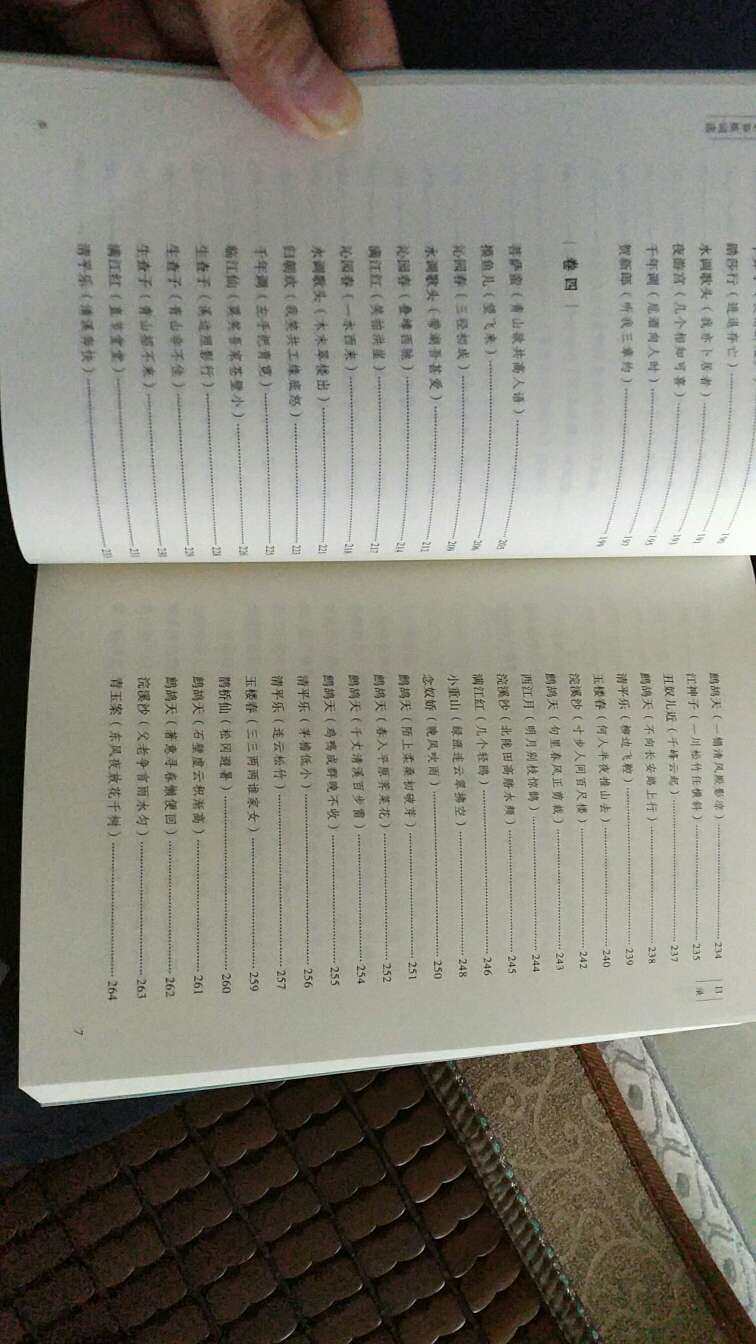 踏莎行（进退存亡） 190
水调歌头（我亦卜居者） 191
夜游宫（几个相知可喜） 193
千年调（卮酒向人时） 195
贺新郎（听我三章约） 197
卷四
菩萨蛮（青山欲共高人语） 205
摸鱼儿（望飞来） 206
沁园春（三径初成） 208
水调歌头（带湖吾甚爱） 212
沁园春（叠嶂西驰） 214
满江红（笑拍洪崖） 217
沁园春（一水西来） 218
水调歌头（木末翠楼出） 221
归朝欢（我笑共工缘底怒） 223
千年调（左手把青霓） 225
临江仙（莫笑吾家苍壁小） 226
生查子（溪边照影行） 228
生查子（青山非不佳） 229
生查子（青山招不来） 230
满江红（直节堂堂） 231
清平乐（清溪奔快） 233
6
目录
鹧鸪天（一榻清风殿影凉） 234
江神子（一川松竹任横斜） 235
丑奴儿近（千峰云起） 237
鹧鸪天（不向长安路上行） 238
清平乐（柳边飞鞚） 239
玉楼春（何人半夜推山去） 240
浣溪沙（寸步人间百尺楼） 242
鹧鸪天（句里春风正剪裁） 243
西江月（明月别枝惊鹊） 244
浣溪沙（北陇田高踏水频） 245
满江红（几个轻鸥） 246
小重山（旋制离歌唱未成） 248
念奴娇（晚风吹雨） 250
鹧鸪天（陌上柔桑初破芽） 251
鹧鸪天（春入平原荠菜花） 252
鹧鸪天（千丈清溪百步雷） 254
鹧鸪天（鸡鸭成群晚不收） 255
清平乐（茅檐低小） 256
清平乐（连云松竹） 257
玉楼春（三三两两谁家女） 259
鹊桥仙（松冈避暑） 260
鹧鸪天（石壁虚云积渐高） 261
鹧鸪天（著意寻春懒便回） 262
浣溪沙（父老争言雨水匀） 263
青玉案（东风夜放花千树） 264
7